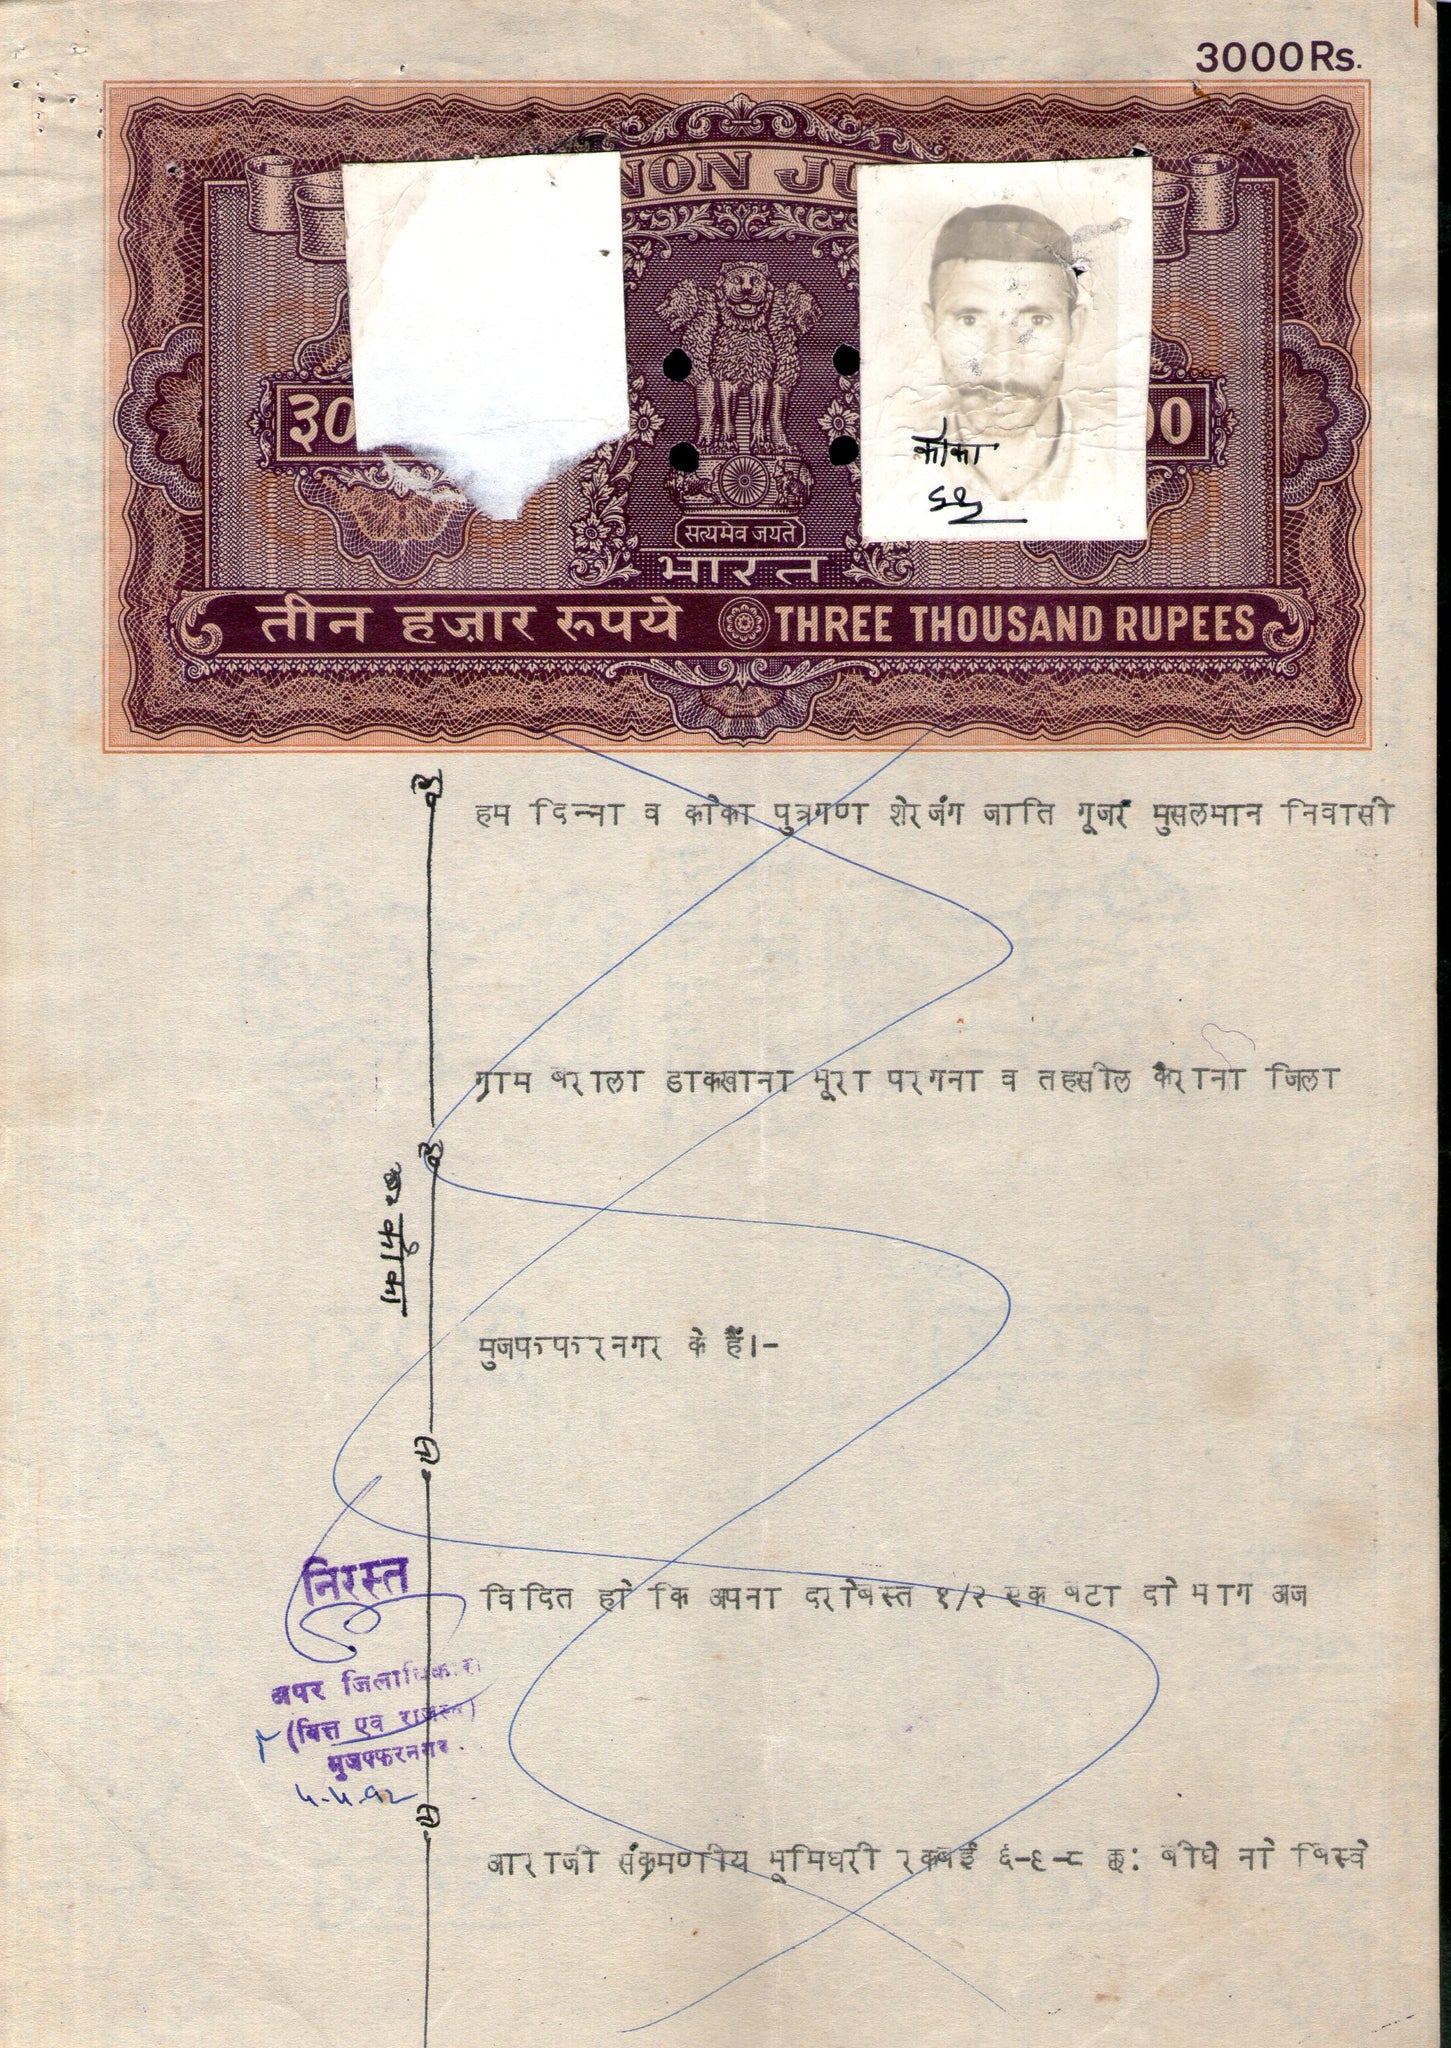 3000Rs.
NON JU
३०
00
कौका
सत्यमेव जयते
भारत
तीन हज़ार रूपये THREE THOUSAND RUPEES
हम दिन्ना व कौका पुत्रगण शेरजंग जाति गूजर मुसलमान निवासी
ग्राम बराला डाकखाना भूरा परगना व तहसील कैराना जिला
कौका
मुजफफरनगर के हैं।-
निरस्त
विदित हो कि अपना दरोबस्त १/२ एक बटा दो भाग अज
अपर जिलाधिकारी
(वित्त एव राजस्व)
मुजफ्फरनगर
५-५-९२
आराजी संक्रमणीय भूमिधरी रकबई ६-९-८ छ: बीघे नो बिस्वे